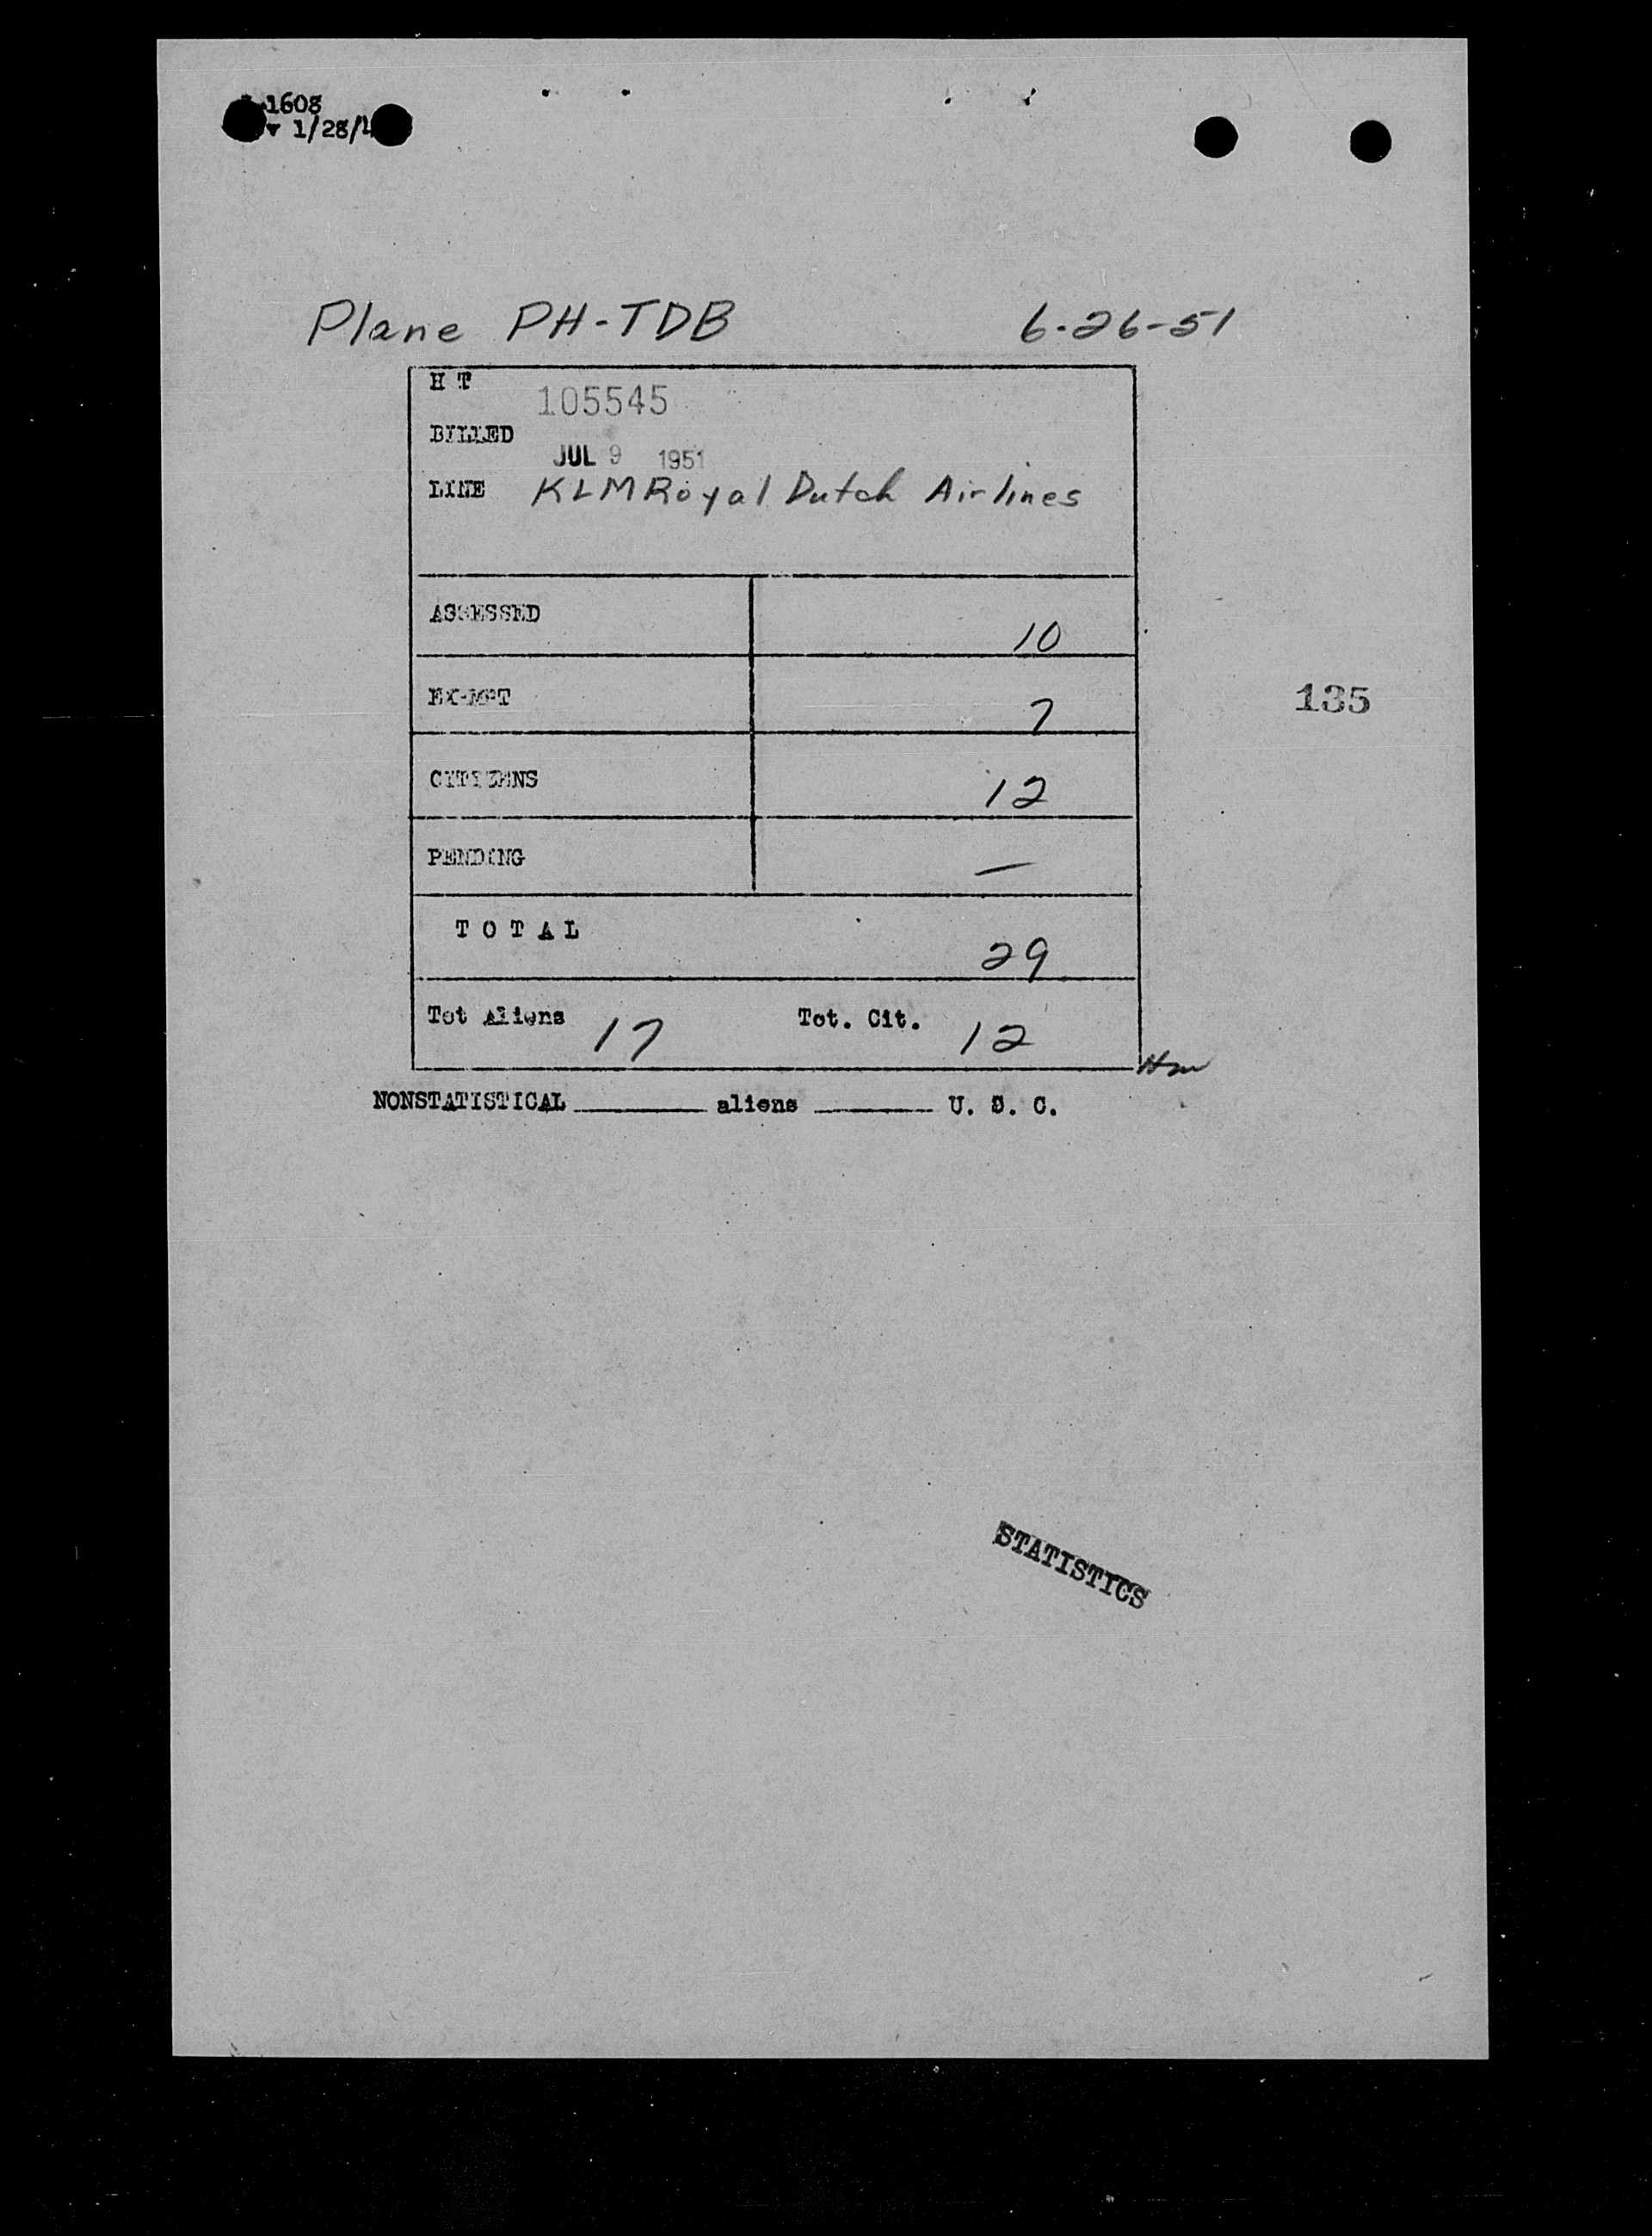 1608
1/28/
Plane PH-TDB 6-26-51
H T 105545
BILLED
JUL 9 1951
LINE KLM Royal Dutch Airlines
ASSESSED 10
EXEMPT 7
CITIZENS 12
PENDING —
135
T O T A L 29
Tot Aliens 17 Tot. Cit. 12
NONSTATISTICAL ________ aliens ________ U. S. C.
STATISTICS